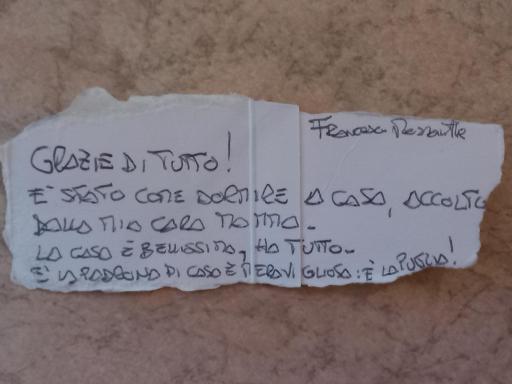 Francesca
GRAZIE DI TUTTO!
E' STATO COME DORMIRE A CASA, ACCOLTO
DALLA MIA CARA MAMMA.
LA CASA È BELLISSIMA, HA TUTTO.
E' LA PADRONA DI CASA È MERAVIGLIOSA: È LA PUGLIA!